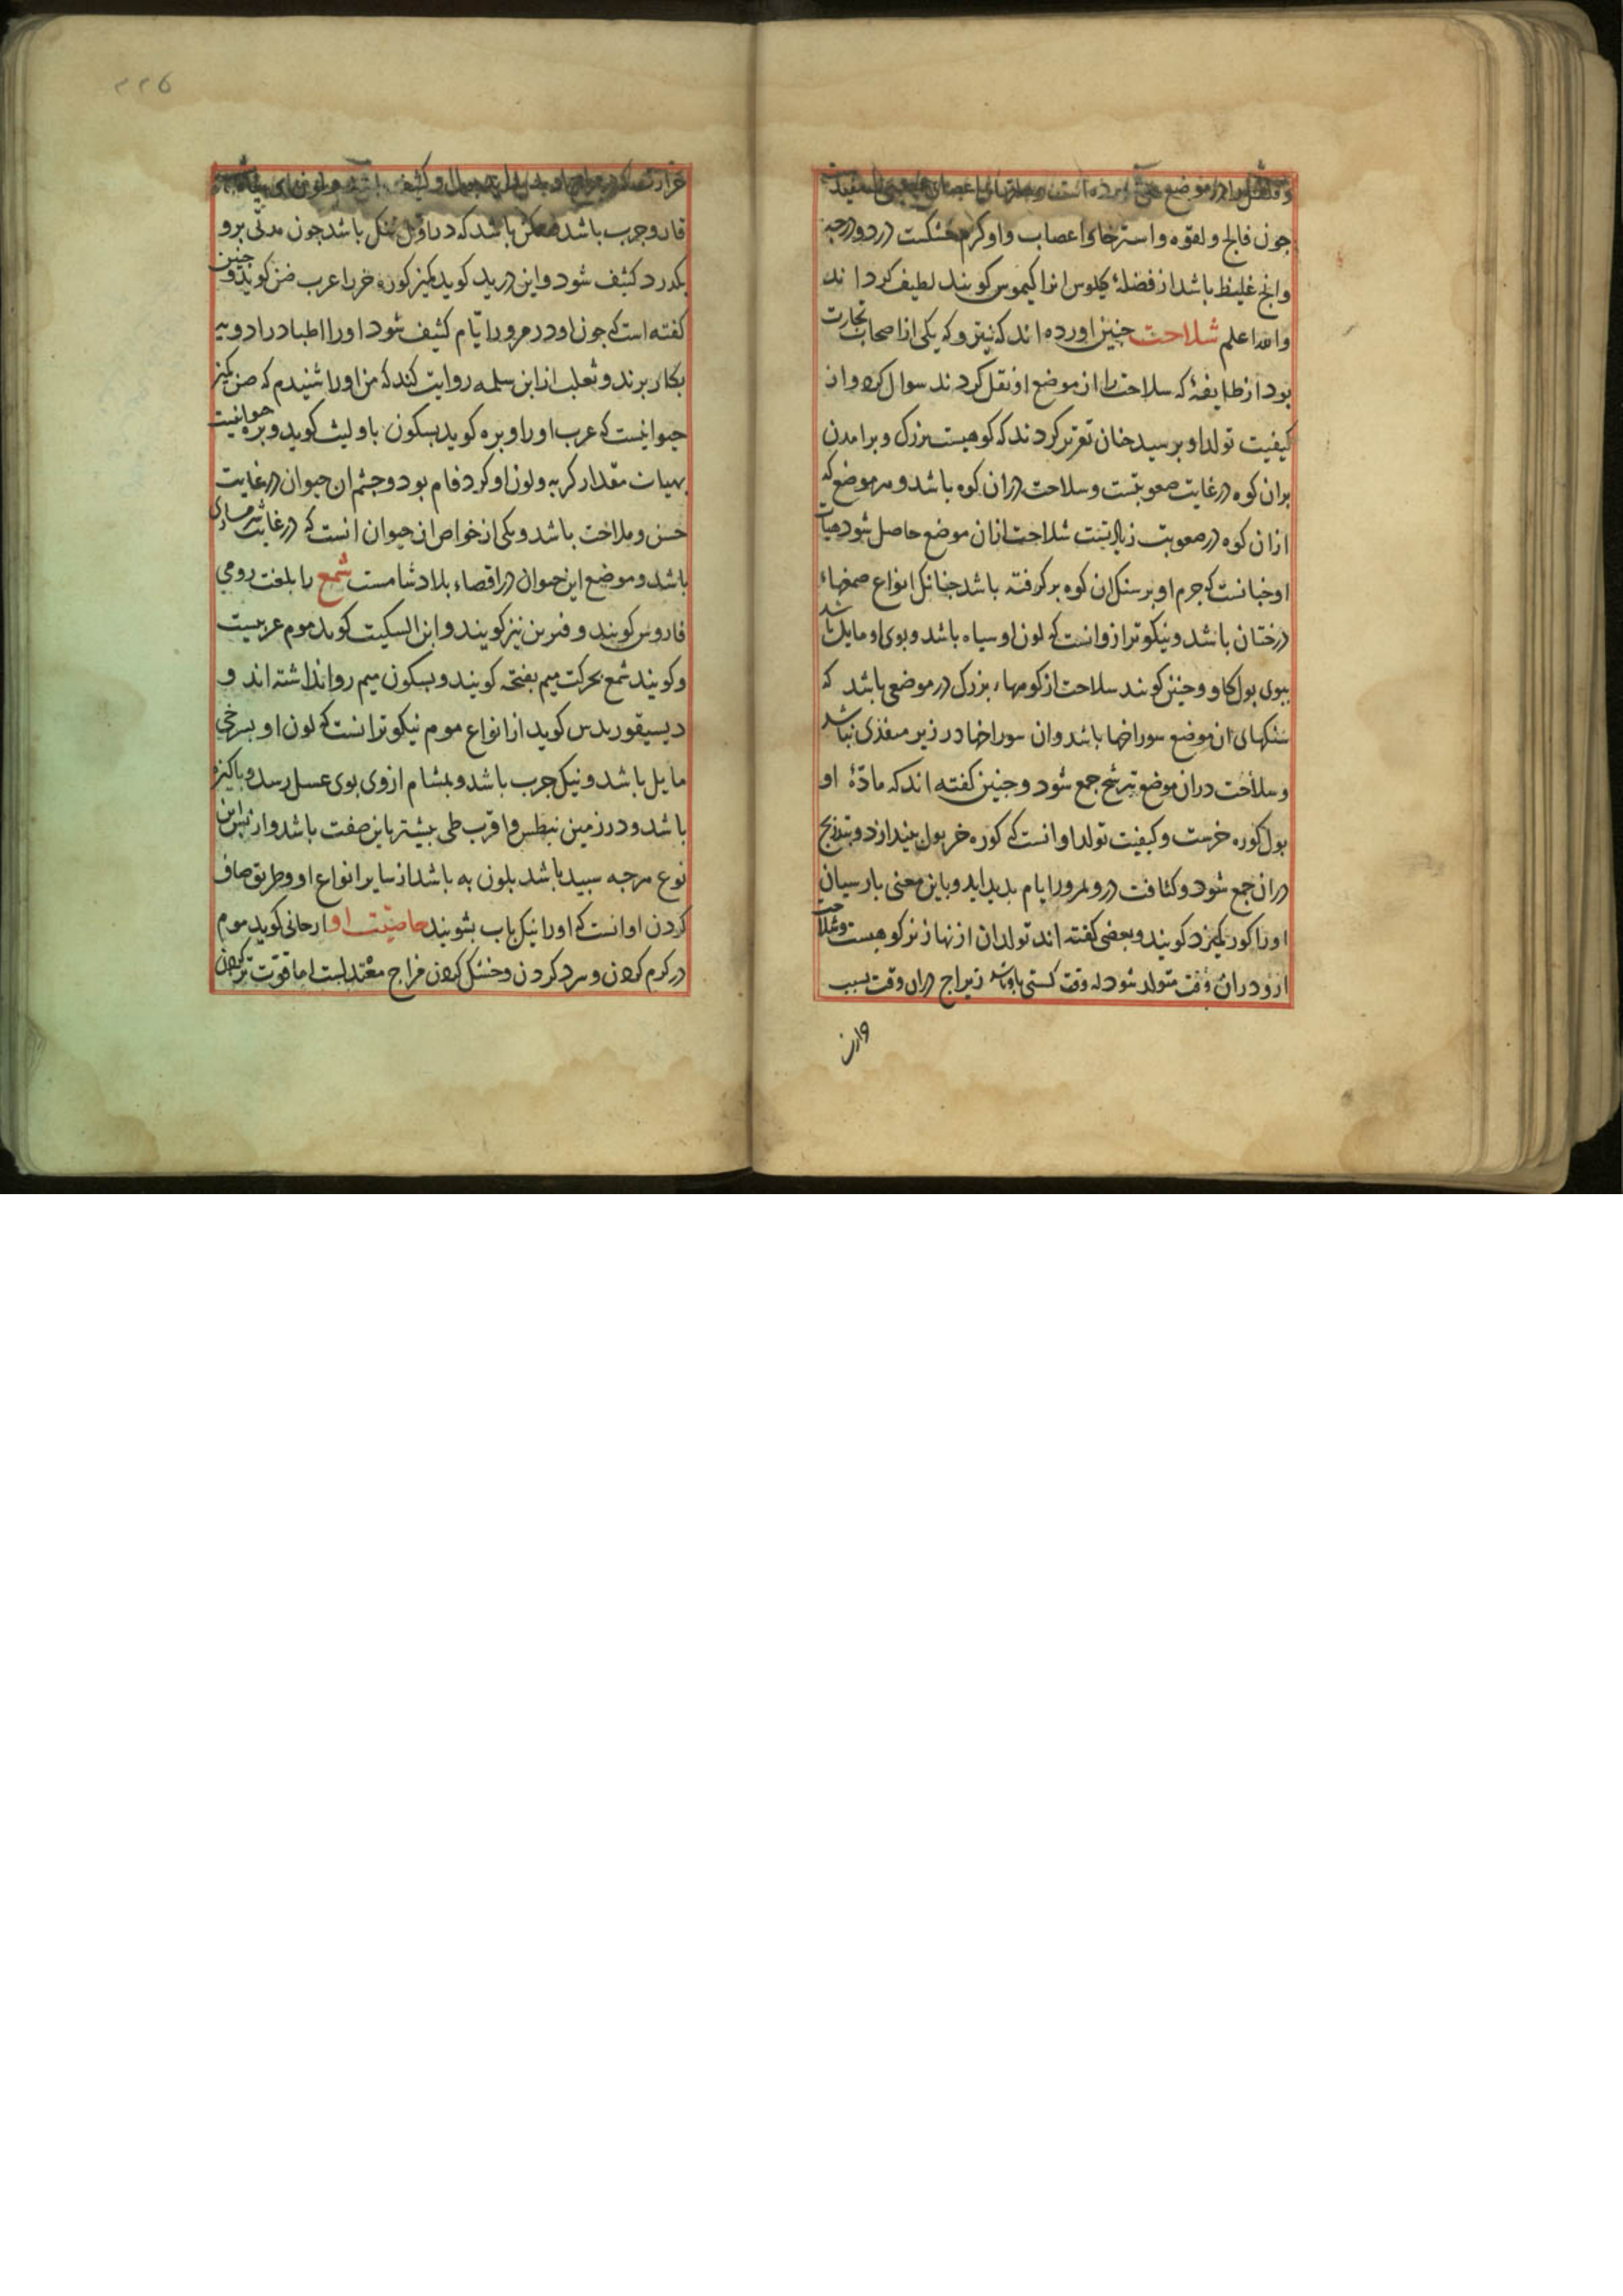 جون فالج و لقوه و استرخای اعصاب و او کرم خشکست در دو درجه
وانج غلیظ باشد از فضلهٔ کیلوس انرا کیموس کویند لطیف کرداند
والله اعلم شلاحت جنین اورده اند که یکی از اصحاب تجارت
بود از طایفهٔ که سلاحت را از موضع او نقل کردند سوال کرد و از
کیفیت تولد او برسید جنان تقریر کردند که کوهیست بزرک و برامدن
بران کوه در غایت صعوبتست و سلاحت دران کوه باشد و هر موضع که
ازان کوه در صعوبت زیادتست شلاحت ازان موضع حاصل شود هیات
او جنانست که جرم او بر سنک ان کوه بر کرفته باشد جنانک انواع صمغهاء
درختان باشد و نیکوتر ازو انست که لون او سیاه باشد و بوی او مایل باشد
ببوی بول کاو و جنین کویند سلاحت از کوههاء بزرک در موضعی باشد که
سنکهای ان موضع سوراخها باشد وان سوراخها در زیر منفذی نباشد
وسلاحت دران موضع بترشح جمع شود و جنین کفته اند که مادّهٔ او
بول کوره خرست و کیفیت تولد او انست که کوره خر بول بیندازد و بتدریج
دران جمع شود و کثافت درو بمرور ایام بدید اید و باین معنی بارسیان
اورا کور کمیزد کویند و بعضی کفته اند تولد ان از نهاز نر کوهیست و شلاحت
ازو دران وقت متولد شود که وقت کشنی باشد زیراج دران وقت بسبب
۲۲۵
قار و جرب باشد ممکن باشد که در اوّل تنک باشد جون مدّتی برو
بکدرد کثیف شود و ابن درید کوید کمیز کوره خر را عرب صن کوید و جنین
کفته است که جون او در مرور ایّام کثیف شود او را اطبا در ادویه
بکار برند و ثعلب از ابن سلمه روایت کند که من اورا شنیدم که صن کمیز
حیوانیست که عرب او را وبره کوید بسکون با و لیث کوید وبره حیوانیست
بهیات مقدار کربه و لون او کرد فام بود و جشم ان حیوان در غایت
حسن و ملاحت باشد و یکی از خواص ان حیوان انست که در غایت شرمساری
باشد و موضع این حیوان در اقصاء بلاد شامست شمع را بلغت رومی
قاروس کویند و فنرین نیز کویند و ابن السکیت کوید موم عربیست
و کویند شمع بحرکت میم بفتحه کویند و بسکون میم روا نداشته اند و
دیسیقوریدس کوید از انواع موم نیکوتر انست که لون او بسرخی
مایل باشد و نیک جرب باشد و بمشام از وی بوی عسل رسد و باکیزه
باشد و در زمین نیطس و اقریطی بیشتر باین صفت باشد و از بس این
نوع هرجه سبید باشد بلون به باشد از سایر انواع او و طریق صاف
کردن او انست که اورا نیک باب بشویند خاصیّت او ارجانی کوید موم
در کرم کردن و سرد کردن و خشک کردن مزاج معتدلست اما قوّت تر کردن